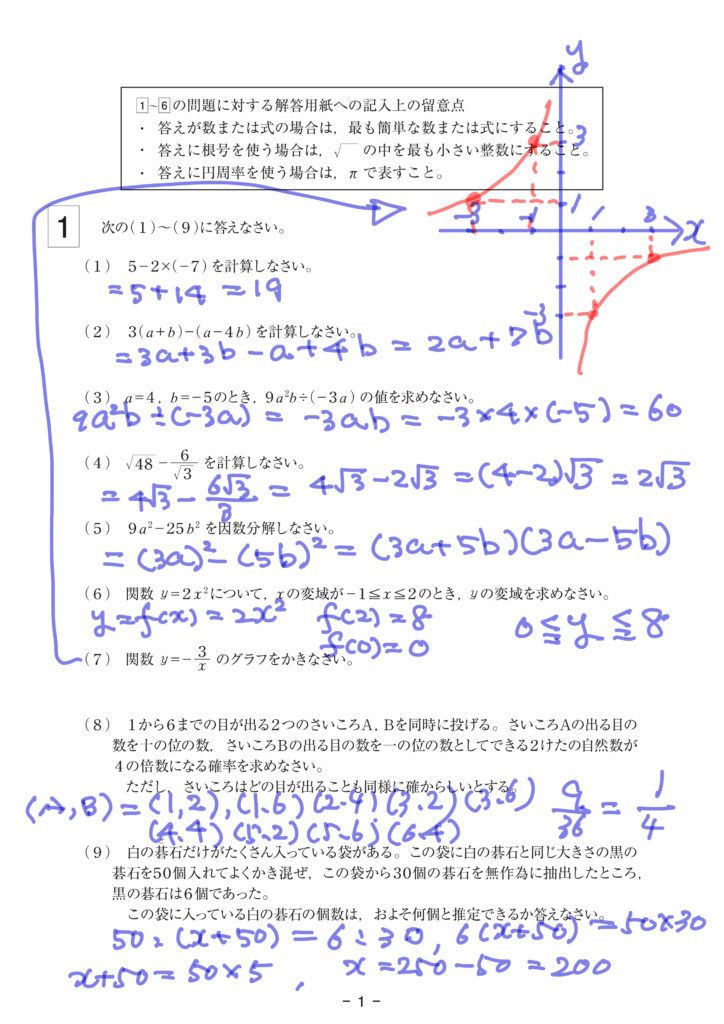 y
1～6の問題に対する解答用紙への記入上の留意点
・ 答えが数または式の場合は，最も簡単な数または式にすること。
・ 答えに根号を使う場合は，√ の中を最も小さい整数にすること。
・ 答えに円周率を使う場合は，π で表すこと。
3
1
-3 -1 1 3 x
-3
1 次の(1)～(9)に答えなさい。
(1) 5－2×(－7) を計算しなさい。
=5+14 =19
(2) 3(a+b)－(a－4b) を計算しなさい。
=3a+3b-a+4b = 2a+7b
(3) a=4，b=－5のとき，9a²b÷(－3a) の値を求めなさい。
9a²b÷(-3a) = -3ab = -3×4×(-5) = 60
(4) √48 － 6/√3 を計算しなさい。
= 4√3 - 6√3/3 = 4√3-2√3 =(4-2)√3 = 2√3
(5) 9a²－25b² を因数分解しなさい。
= (3a)²-(5b)² = (3a+5b)(3a-5b)
(6) 関数 y=2x²について，xの変域が－1≦x≦2のとき，yの変域を求めなさい。
y=f(x)=2x² f(2)=8 0≦y≦8
f(0)=0
(7) 関数 y=－3/x のグラフをかきなさい。
(8) 1から6までの目が出る2つのさいころA，Bを同時に投げる。さいころAの出る目の
数を十の位の数，さいころBの出る目の数を一の位の数としてできる2けたの自然数が
4の倍数になる確率を求めなさい。
ただし，さいころはどの目が出ることも同様に確からしいとする。
(A,B)=(1,2),(1.6)(2.4)(3.2)(3.6) 9/36 = 1/4
(4.4)(5.2)(5.6)(6.4)
(9) 白の碁石だけがたくさん入っている袋がある。この袋に白の碁石と同じ大きさの黒の
碁石を50個入れてよくかき混ぜ，この袋から30個の碁石を無作為に抽出したところ，
黒の碁石は6個であった。
この袋に入っている白の碁石の個数は，およそ何個と推定できるか答えなさい。
50:(x+50)=6:30, 6(x+50)=50×30
x+50=50×5, x=250-50=200
－ 1 －